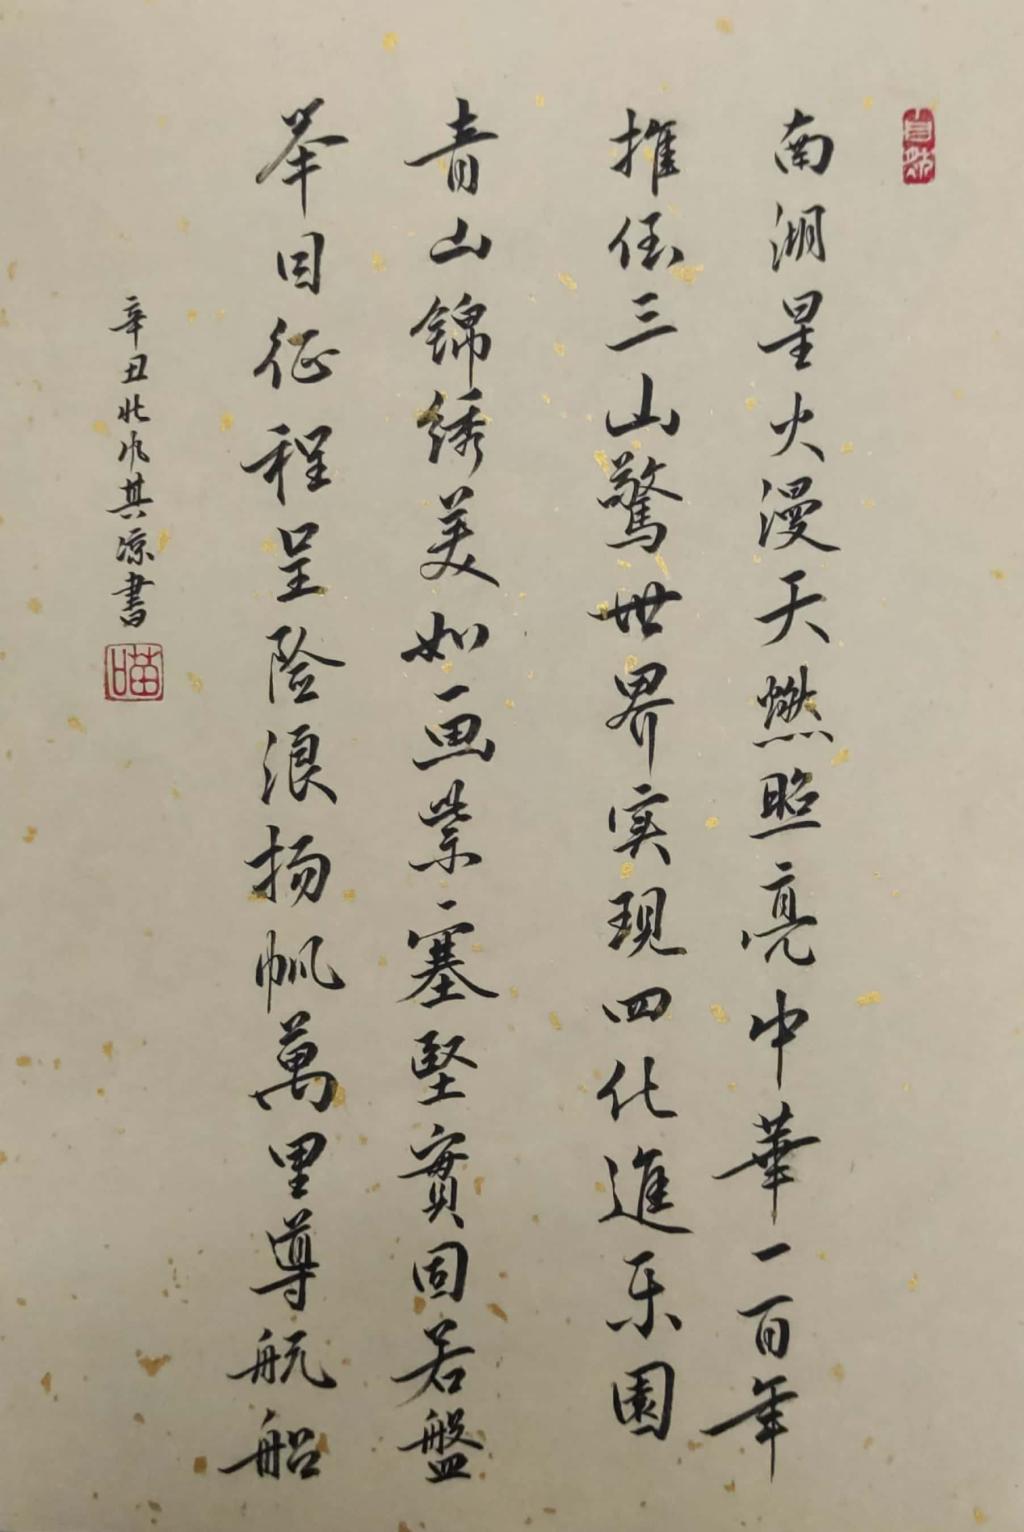 南湖星火漫天燃照亮中華一百年
推倒三山驚世界实现四化進乐園
青山錦绣美如画紫塞堅實固若盤
举目征程呈险浪扬帆萬里導航船
辛丑北风其凉書
喵
自然